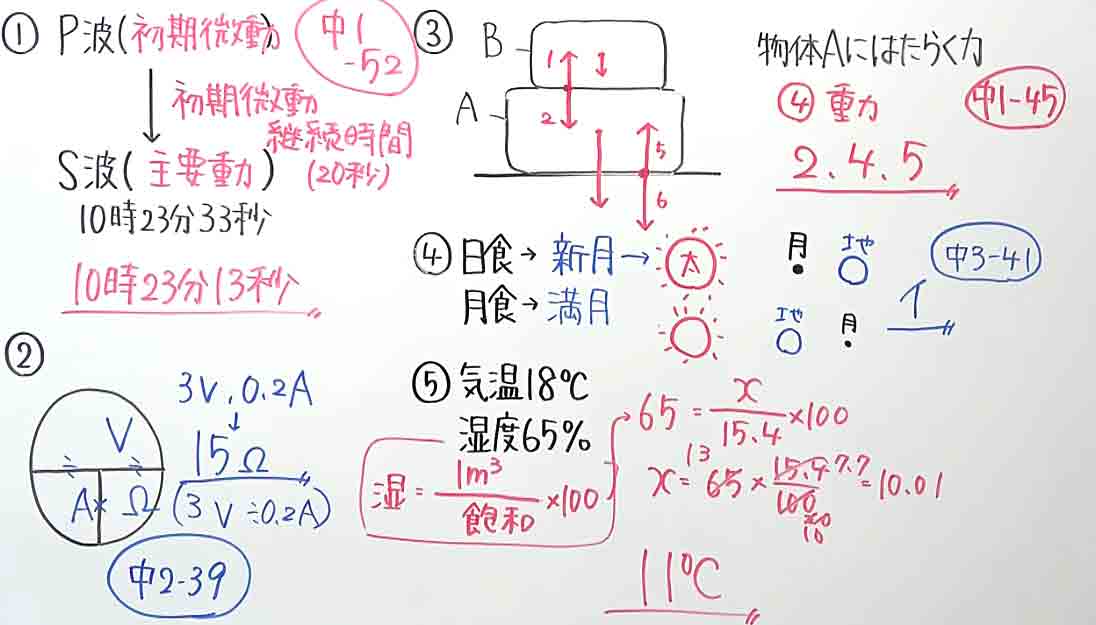 ① P波(初期微動)
中1
-52
初期微動
継続時間
(20秒)
S波(主要動)
10時23分33秒
10時23分13秒
②
V
A× Ω
÷ ÷
3V, 0.2A
↓
15Ω
(3V÷0.2A)
中2-39
③
B
A
1
2
5
6
物体Aにはたらく力
④ 重力
中1-45
2.4.5
④ 日食→新月→ 太 月 地
中3-41
月食→満月 地 月
⑤ 気温18℃
湿度65%
湿= 1m³/飽和 ×100
65 = x/15.4 ×100
x = 65 × 15.4/100 = 10.01
13
7.7
20
10
11℃